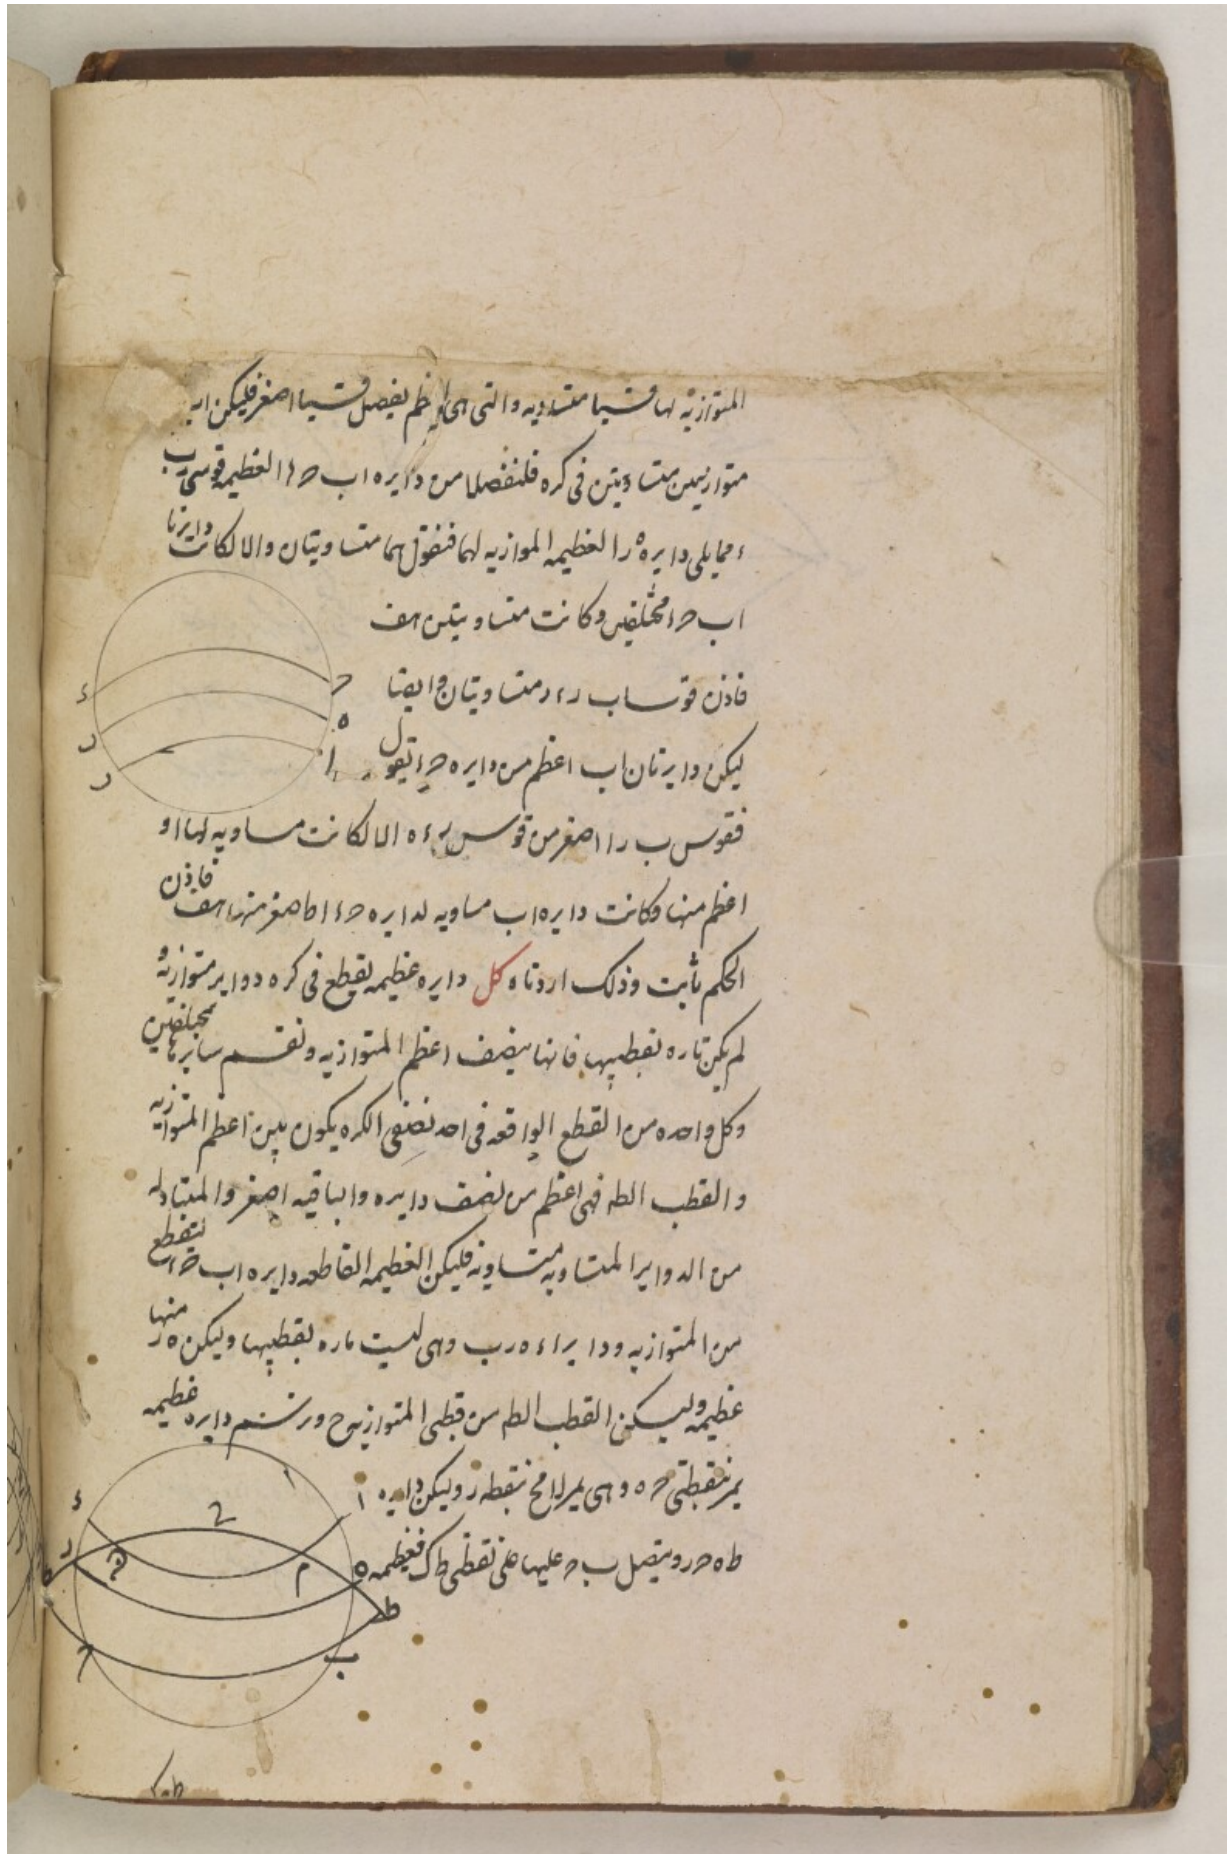 المتوازية لها قسيا متساويه والتى هى اعظم يفصل قسيا اصغر فليكن اب
متوازيين متساويتين فى كره فلنفصلا من دايره اب حء العظيمه قوسى رب
ء مما يلى دايره ه ر العظيمه الموازيه لهما فنقول هما متساويتان والا لكانت دايرتا
اب حء مختلفين وكانت متساويتين هف
فاذن قوسا ب ر ء ر متساويتان وايضا
ليكن دايرتان اب اعظم من دايره حء نقول
فقوس ب ر اصغر من قوس ر ء ه الا لكانت مساويه لها او
اعظم منها وكانت دايره اب مساويه لدايره حء او اصغر منها هف فاذن
الحكم ثابت وذلك اردناه كل دايره عظيمه يقطع فى كره دواير متوازية و
لم يكن ماره بقطبيها فانها ينصف اعظم المتوازيه وتقسم سايرها بمختلفين
وكل واحده من القطع الواقعه فى احد نصفى الكره يكون بين اعظم المتوازيه
والقطب الظه فهى اعظم من نصف دايره والباقيه اصغر والمتبادله
من الدواير المتساويه متساويه فليكن العظيمه القاطعه دايره اب حء لتقطع
من المتوازيه ودايرا ء ه ر ب وهى ليست ماره بقطبيها وليكن ه ر منها
عظيمه وليكن القطب الظه من قطبى المتوازيه ح ونرسم دايره عظيمه
يمر بنقطتى ح ه وهى يمر لا مح بنقطه ر وليكن دايره
ط ه ح ر ويتصل ب ح عليها على نقطتى ط ك فعظيمه
ء
ح
ه
ر
ا
ب
ا
ء
ح
ر
ه
م
ط
ب
ح
ط ه